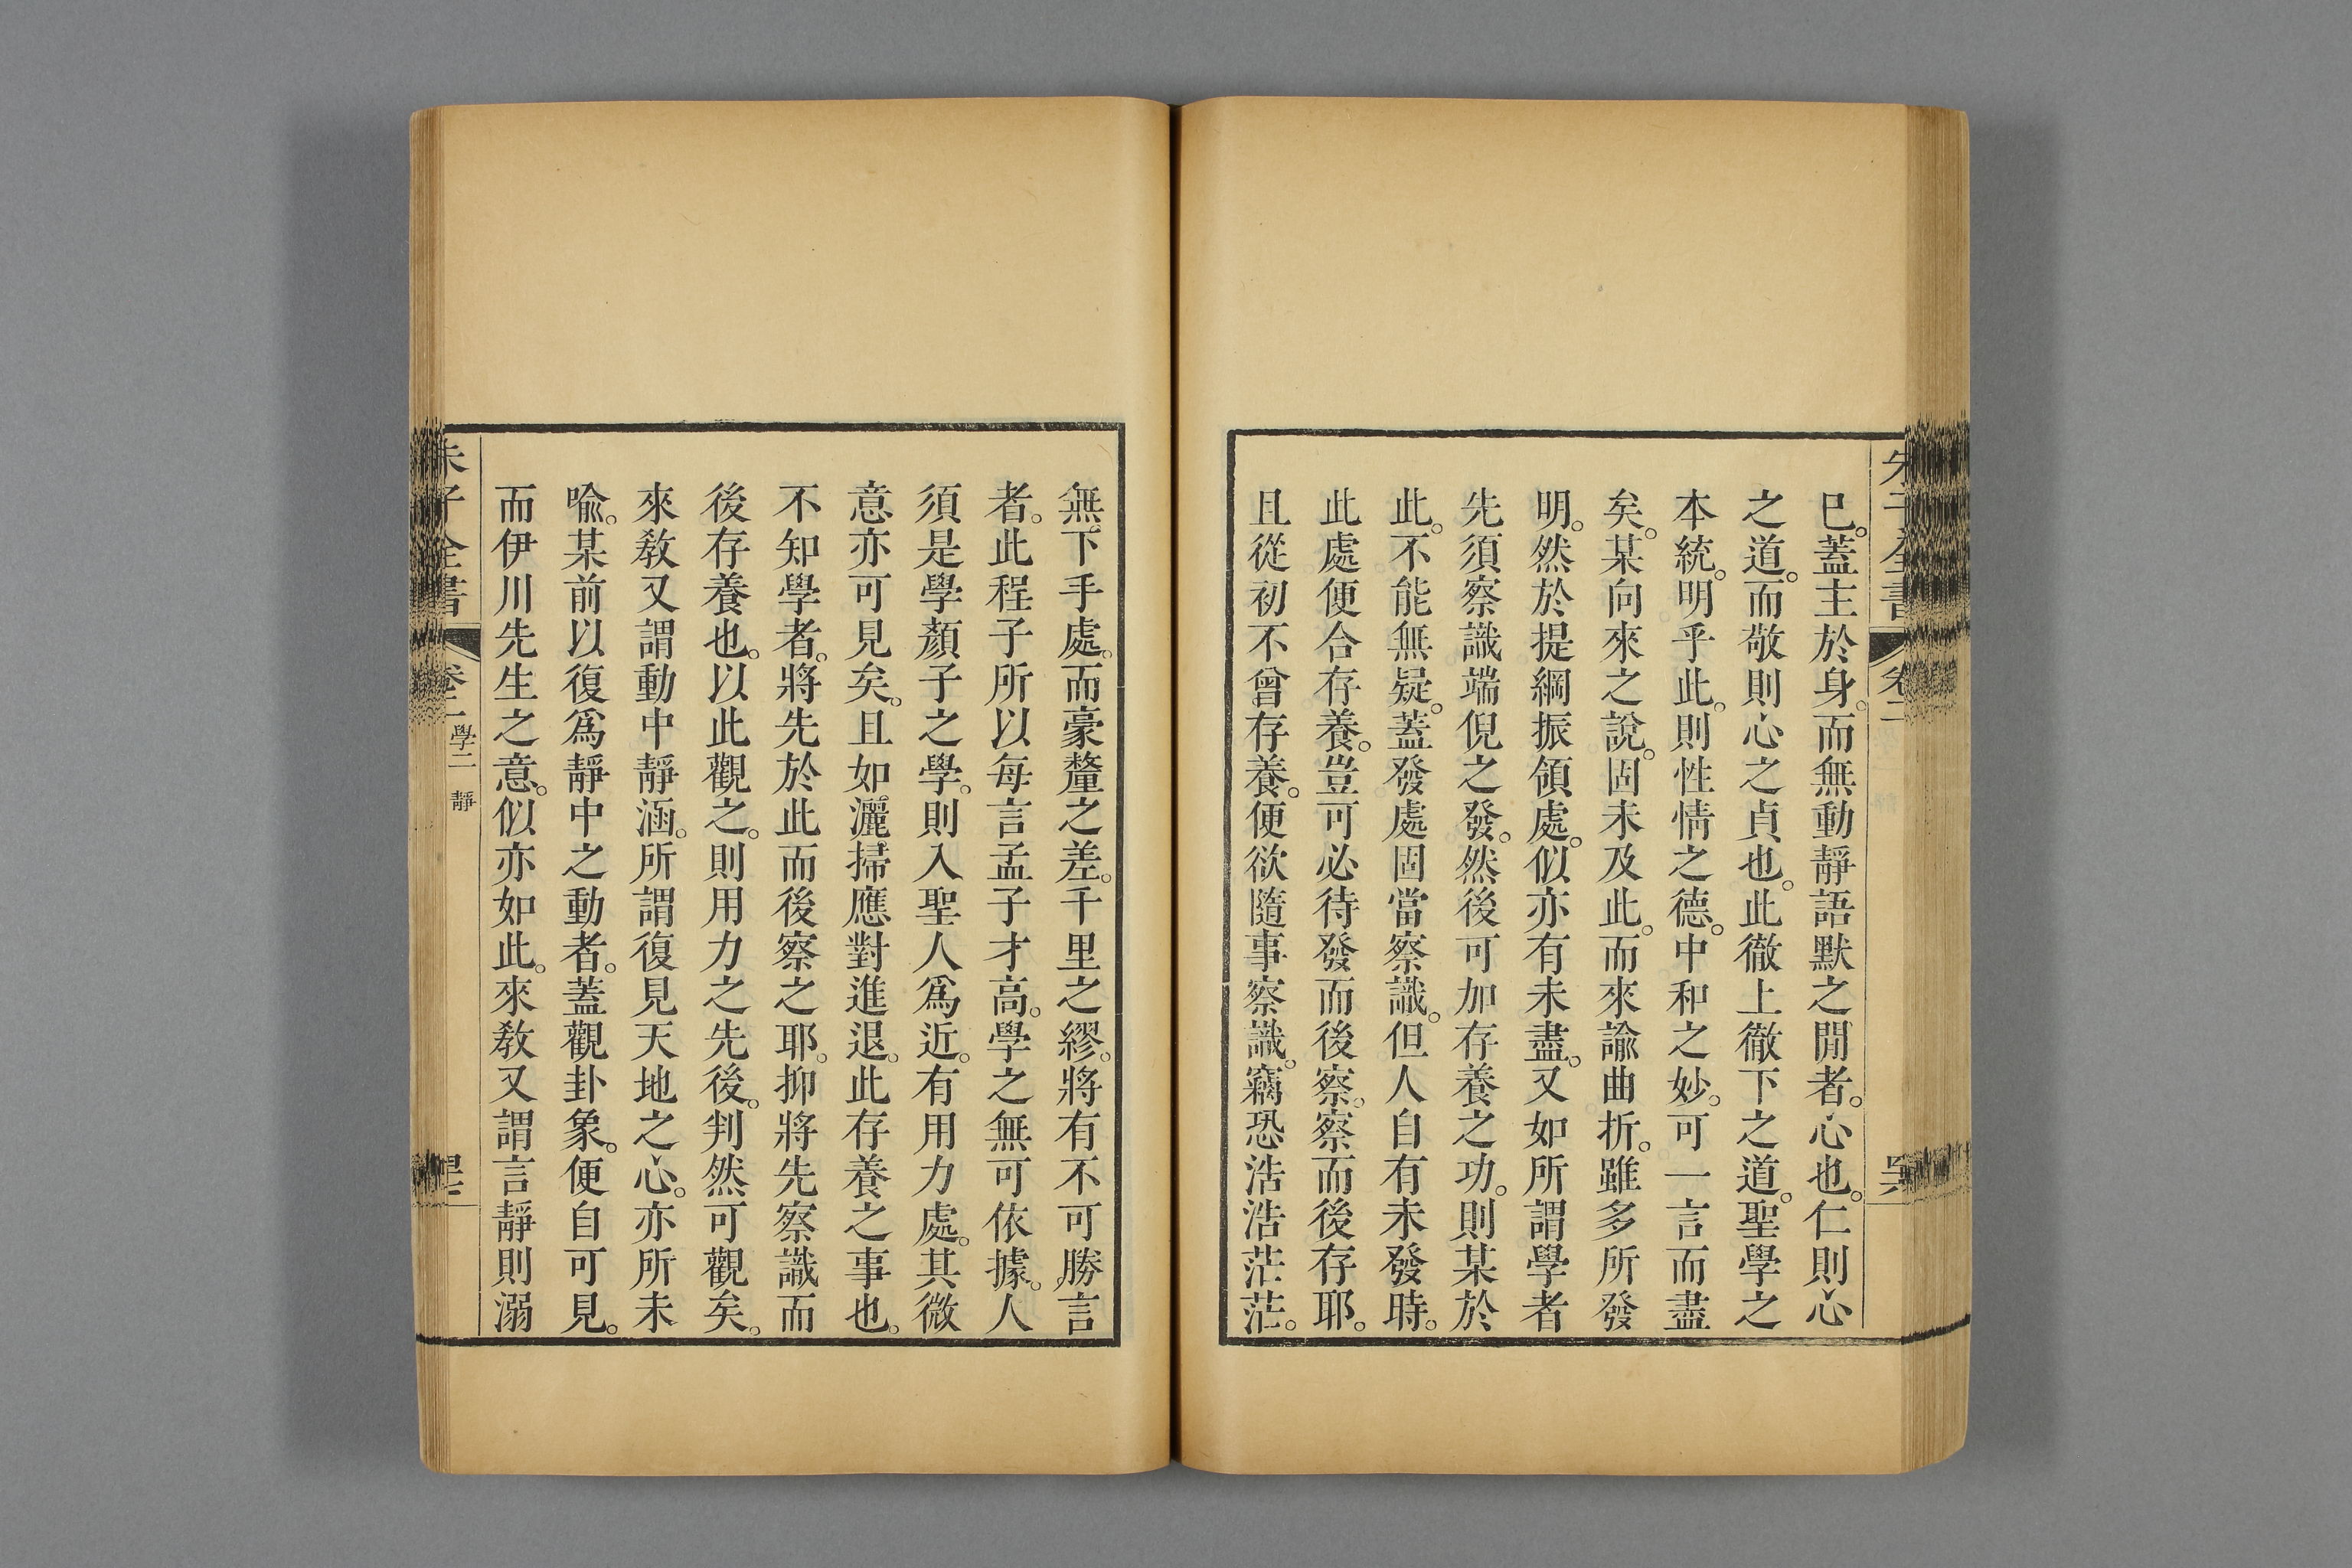 朱子全書
卷二
已。蓋主於身。而無動靜語默之閒者。心也。仁則心
之道。而敬則心之貞也。此徹上徹下之道。聖學之
本統。明乎此。則性情之德。中和之妙。可一言而盡
矣。某向來之說。固未及此。而來諭曲折。雖多所發
明。然於提綱振領處。似亦有未盡。又如所謂學者
先須察識端倪之發。然後可加存養之功。則某於
此。不能無疑。蓋發處固當察識。但人自有未發時。
此處便合存養。豈可必待發而後察。察而後存耶。
且從初不曾存養。便欲隨事察識。竊恐浩浩茫茫。
無下手處。而豪釐之差。千里之繆。將有不可勝言
者。此程子所以每言孟子才高。學之無可依據。人
須是學顏子之學。則入聖人爲近。有用力處。其微
意亦可見矣。且如灑掃應對進退。此存養之事也。
不知學者。將先於此而後察之耶。抑將先察識而
後存養也。以此觀之。則用力之先後。判然可觀矣。
來教又謂動中靜涵。所謂復見天地之心。亦所未
喻。某前以復爲靜中之動者。蓋觀卦象。便自可見。
而伊川先生之意。似亦如此。來教又謂言靜則溺
朱子全書
卷二 學二 靜